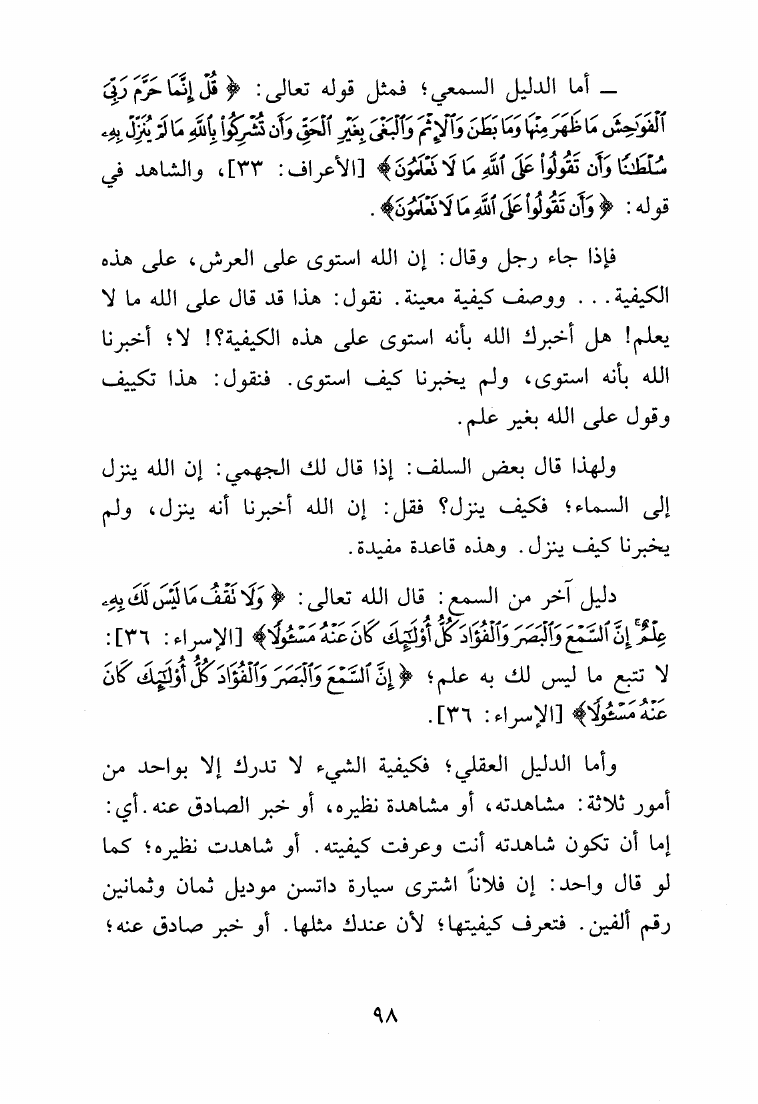 ـ أما الدليل السمعي؛ فمثل قوله تعالى: ﴿قُلْ إِنَّمَا حَرَّمَ رَبِّىَ
ٱلْفَوَٰحِشَ مَا ظَهَرَ مِنْهَا وَمَا بَطَنَ وَٱلْإِثْمَ وَٱلْبَغْىَ بِغَيْرِ ٱلْحَقِّ وَأَن تُشْرِكُوا۟ بِٱللَّهِ مَا لَمْ يُنَزِّلْ بِهِۦ
سُلْطَٰنًا وَأَن تَقُولُوا۟ عَلَى ٱللَّهِ مَا لَا تَعْلَمُونَ﴾ [الأعراف: ٣٣]، والشاهد في
قوله: ﴿وَأَن تَقُولُوا۟ عَلَى ٱللَّهِ مَا لَا تَعْلَمُونَ﴾.
فإذا جاء رجل وقال: إن الله استوى على العرش، على هذه
الكيفية... ووصف كيفية معينة. نقول: هذا قد قال على الله ما لا
يعلم! هل أخبرك الله بأنه استوى على هذه الكيفية؟! لا؛ أخبرنا
الله بأنه استوى، ولم يخبرنا كيف استوى. فنقول: هذا تكييف
وقول على الله بغير علم.
ولهذا قال بعض السلف: إذا قال لك الجهمي: إن الله ينزل
إلى السماء؛ فكيف ينزل؟ فقل: إن الله أخبرنا أنه ينزل، ولم
يخبرنا كيف ينزل. وهذه قاعدة مفيدة.
دليل آخر من السمع: قال الله تعالى: ﴿وَلَا تَقْفُ مَا لَيْسَ لَكَ بِهِۦ
عِلْمٌ ۚ إِنَّ ٱلسَّمْعَ وَٱلْبَصَرَ وَٱلْفُؤَادَ كُلُّ أُو۟لَٰٓئِكَ كَانَ عَنْهُ مَسْـُٔولًا﴾ [الإسراء: ٣٦]:
لا تتبع ما ليس لك به علم؛ ﴿إِنَّ ٱلسَّمْعَ وَٱلْبَصَرَ وَٱلْفُؤَادَ كُلُّ أُو۟لَٰٓئِكَ كَانَ
عَنْهُ مَسْـُٔولًا﴾ [الإسراء: ٣٦].
وأما الدليل العقلي؛ فكيفية الشيء لا تدرك إلا بواحد من
أمور ثلاثة: مشاهدته، أو مشاهدة نظيره، أو خبر الصادق عنه. أي:
إما أن تكون شاهدته أنت وعرفت كيفيته. أو شاهدت نظيره؛ كما
لو قال واحد: إن فلاناً اشترى سيارة داتسن موديل ثمان وثمانين
رقم ألفين. فتعرف كيفيتها؛ لأن عندك مثلها. أو خبر صادق عنه؛
٩٨